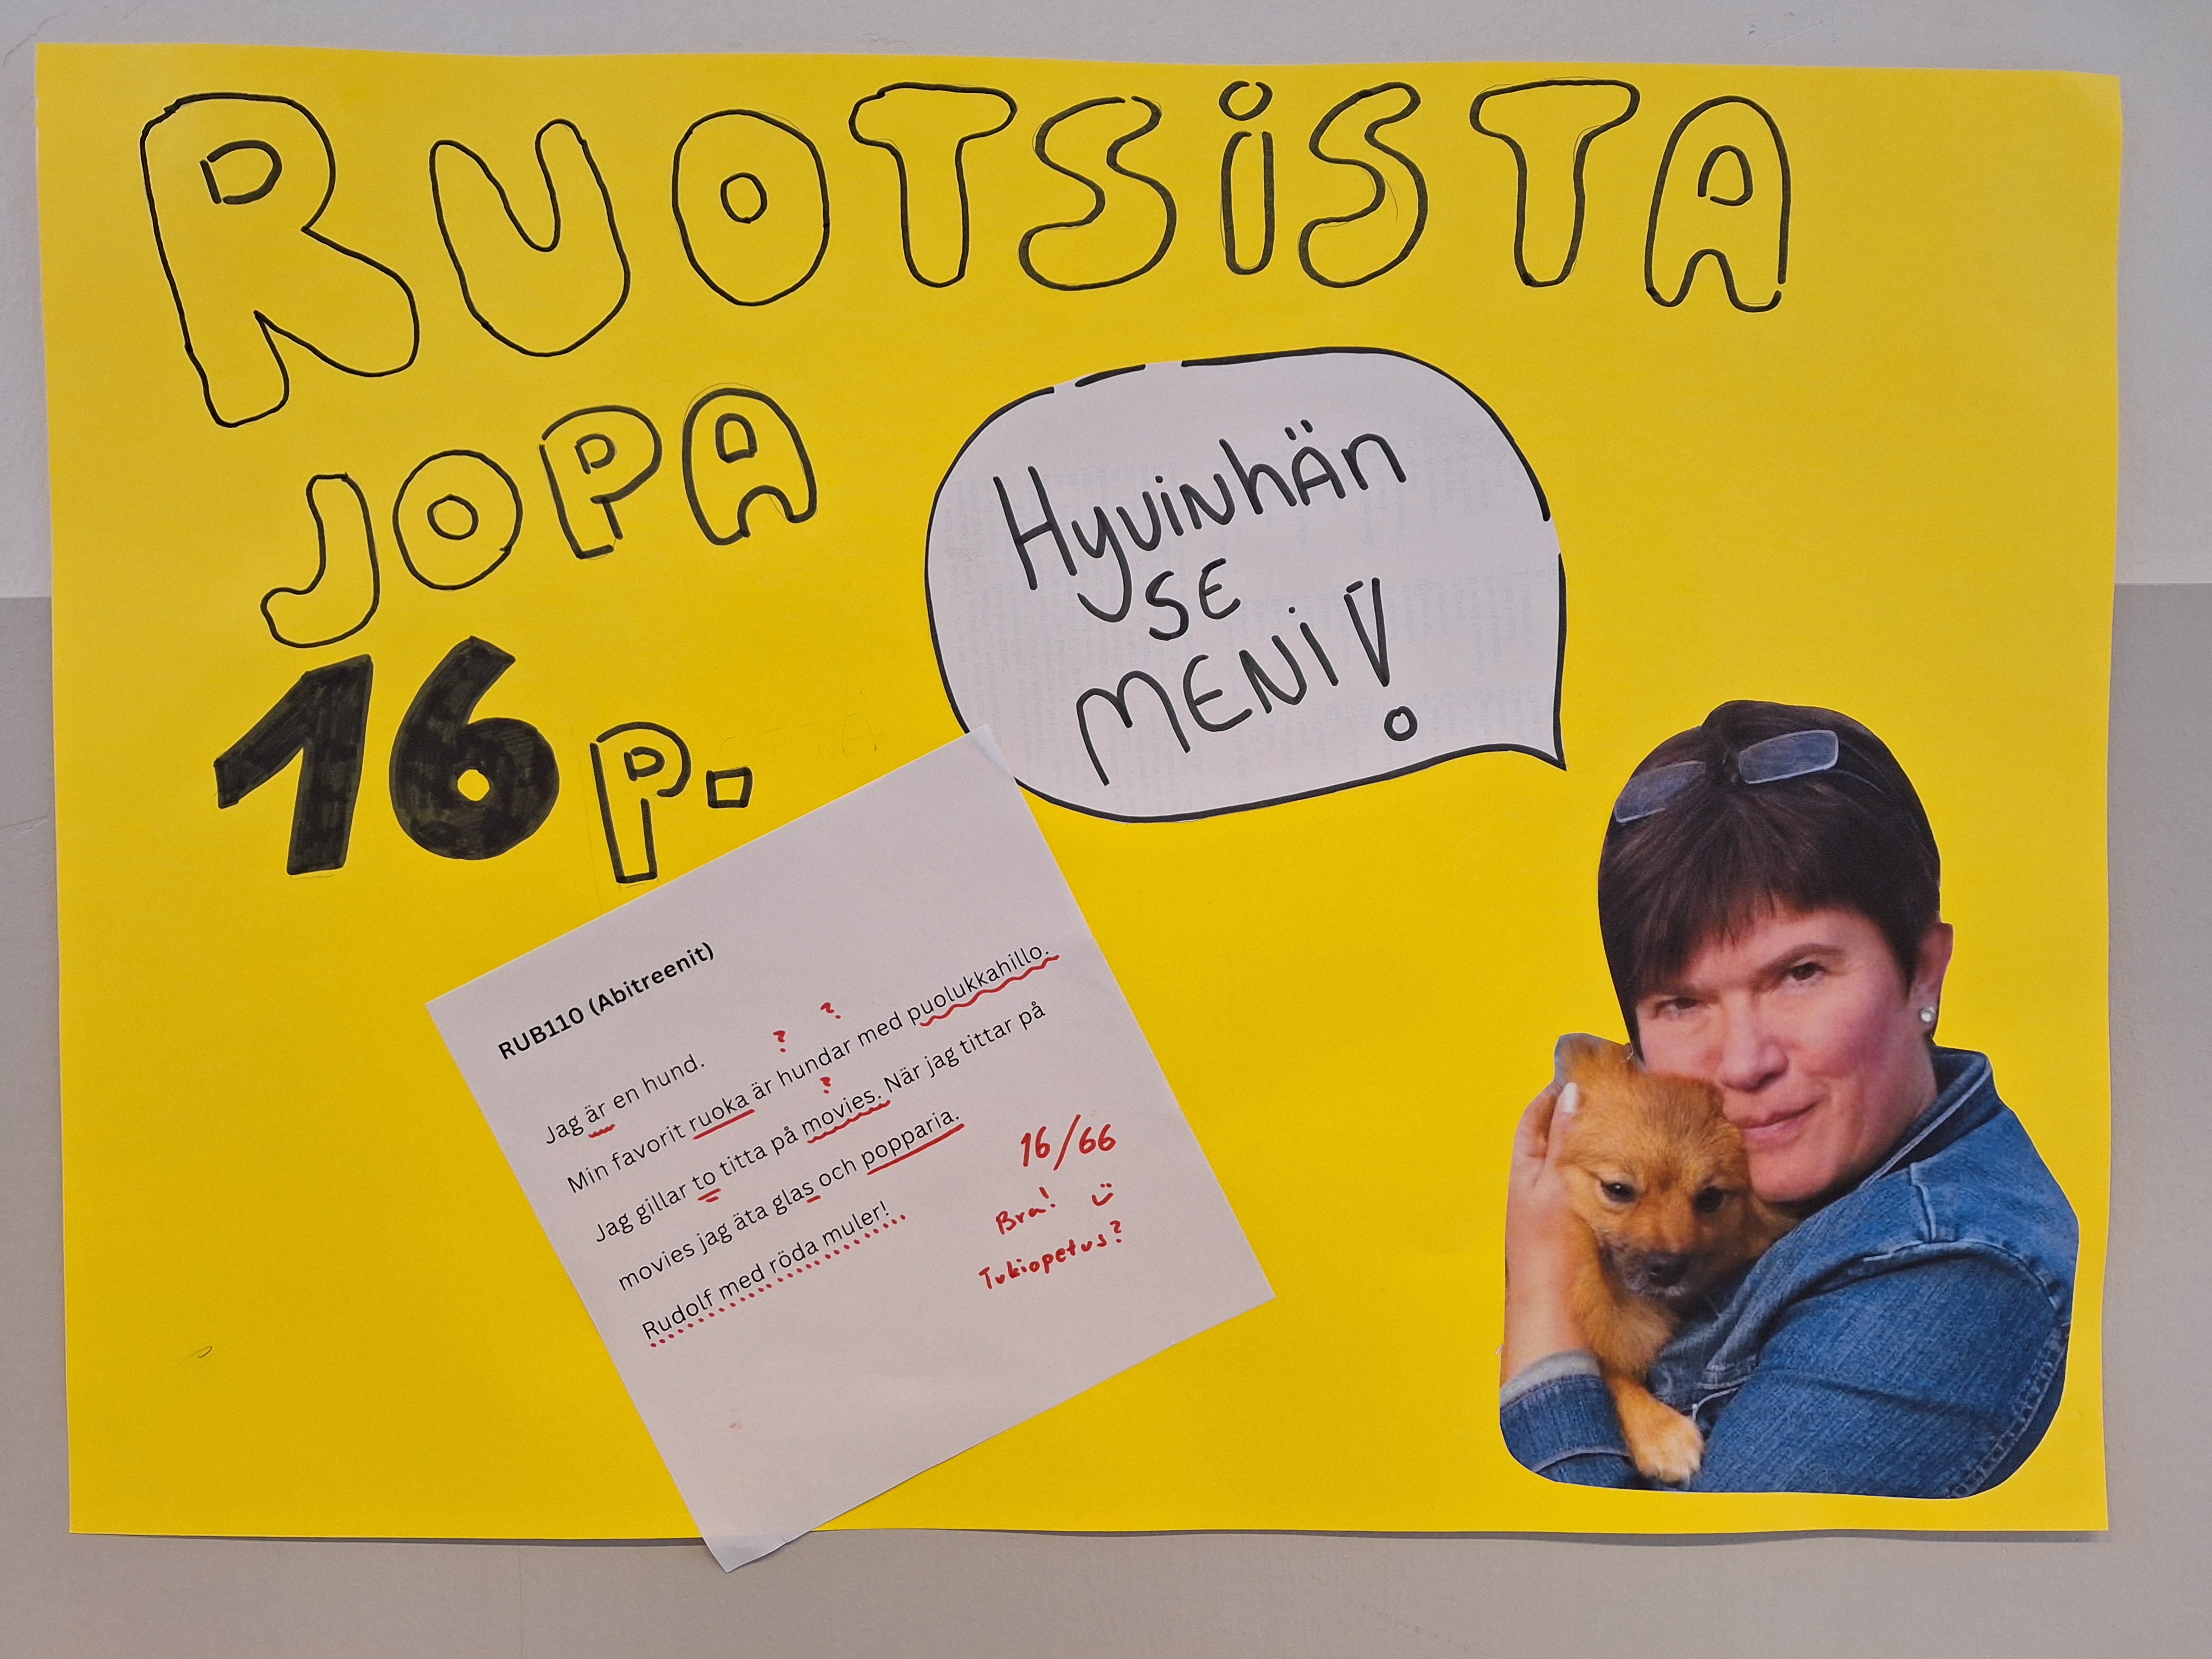 RUOTSISTA
JOPA
16 p.
Hyvinhän
SE
MENi!
RUB110 (Abitreenit)
Jag är en hund.
? ?
Min favorit ruoka är hundar med puolukkahillo.
?
Jag gillar to titta på movies. När jag tittar på
movies jag äta glas och popparia.
Rudolf med röda muler!
16/66
Bra! :)
Tukiopetus?